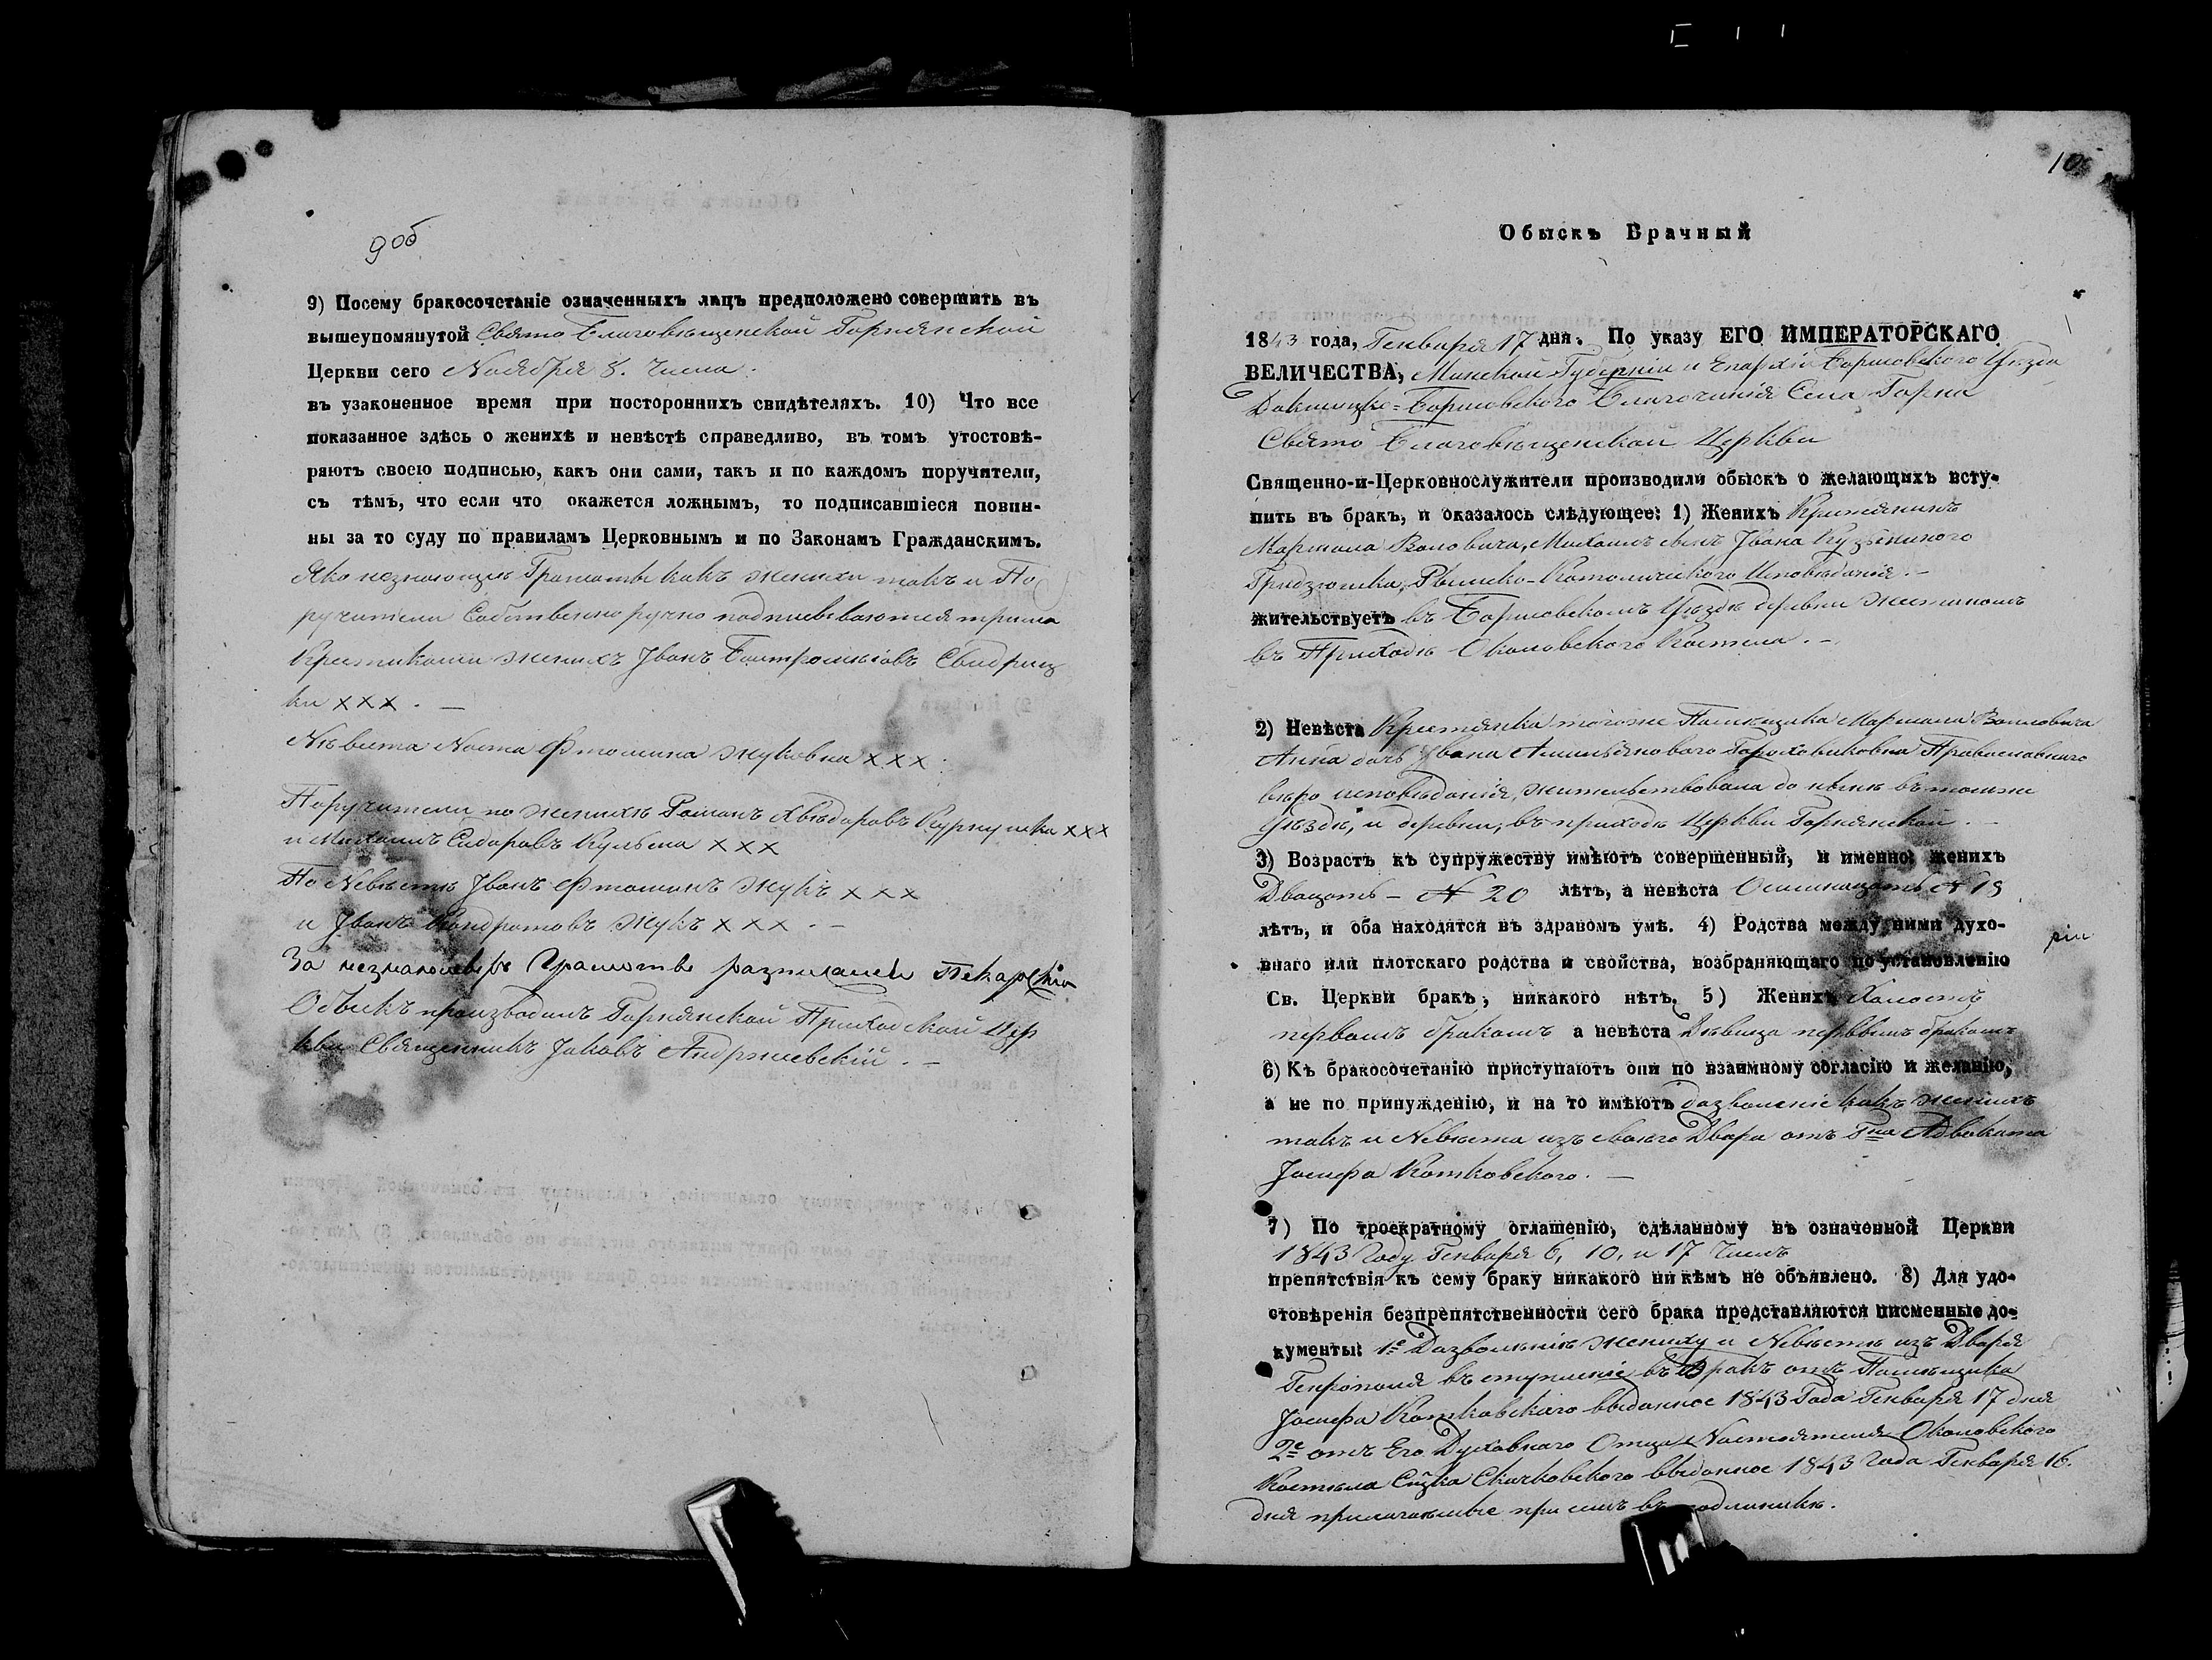 9об
9) Посему бракосочетаніе означенныхъ лицъ предположено совершить въ
вышеупомянутой Свято Благовѣщенской Горнянской
Церкви сего Ноября 8. Числа.
въ узаконенное время при постороннихъ свидѣтеляхъ. 10) Что все
показанное здѣсь о женихѣ и невѣстѣ справедливо, въ томъ утостовѣ-
ряютъ своею подписью, какъ они сами, такъ и по каждомъ поручители,
съ тѣмъ, что если что окажется ложнымъ, то подписавшіеся повин-
ны за то суду по правиламъ Церковнымъ и по Законамъ Гражданскимъ.
Яко незнающіе Грамоты какъ женихи такъ и По
ручители Собственно ручно подписываются трима
Крестиками женихъ Іванъ
ки ххх . —
Невѣста Наста Фтомина Жуковна ххх
Поручители по женихѣ Романъ Хведоровъ ххх
и Михаилъ Сидоровъ ххх
По Невѣстѣ Іванъ Фтоминъ Жукъ ххх
и Іванъ Кондратовъ Жукъ ххх . —
За Грамоты
Обыскъ производилъ Горнянской Приходской Цер
кви Священникъ Іаковъ Андржиевскій . —
10
Обыскъ Брачный
1843 года, Генваря 17 дня. По указу ЕГО ИМПЕРАТОРСКАГО
ВЕЛИЧЕСТВА, Минской Губерніи и Епархіи Борисовского Уѣзда
Докшицко=Борисовского Благочинія Села Горна
Свято Благовѣщенской Церкви
Священно-и-Церковнослужители производили обыскъ о желающихъ всту-
пить въ бракъ, и оказалось слѣдующее: 1) Женихъ Крестянинъ
Михаилъ сынъ Івана
Рымско-Католического Исповѣданія. —
жительствуетъ въ Борисовскомъ Уѣздѣ деревни
въ Приходѣ Околовского Костела. —
2) Невѣста Крестянка тогоже Помѣщика
Анна дочь Івана Православного
исповѣданія, жительствовала до нынѣ въ томже
Уѣздѣ, и деревни, въ приходѣ Церкви Горнянской. —
3) Возрастъ къ супружеству имѣютъ совершенный, и именно: женихъ
Двацать – № 20 лѣтъ, а невѣста Осимнацать № 18
лѣтъ, и оба находятся въ здравомъ умѣ. 4) Родства между ними духо-
внаго или плотскаго родства и свойства, возбраняющаго по установленію
Св. Церкви бракъ, никакого нѣтъ. 5) Женихъ Холостъ
первымъ бракомъ а невѣста Дѣвица первымъ бракомъ
6) Къ бракосочетанію приступаютъ они по взаимному согласію и желанію,
а не по принужденію, и на то имѣютъ дозволеніе какъ женихъ
такъ и Невѣста изъ своего Двора отъ Гна Адвоката
Іосифа Котковского. —
7) По троекратному оглашенію, сдѣланному въ означенной Церкви
1843 Году Генваря 6, 10, и 17 Числъ
препятствія къ сему браку никакого ни кѣмъ не объявлено. 8) Для удо-
стовѣренія безпрепятственности сего брака представляются писменные до-
кументы: 1е Дозволеніе жениху и Невѣстѣ изъ Двора
въ ступленіе въ Бракъ отъ Помѣщика
Іосифа Котковского выданное 1843 Года Генваря 17 дня
2е отъ Его Духовного Отца Настоятеля Околовского
Костела выданное 1843 Года Генваря 16.
дня прилагаемые при симъ въ подлинникѣ.